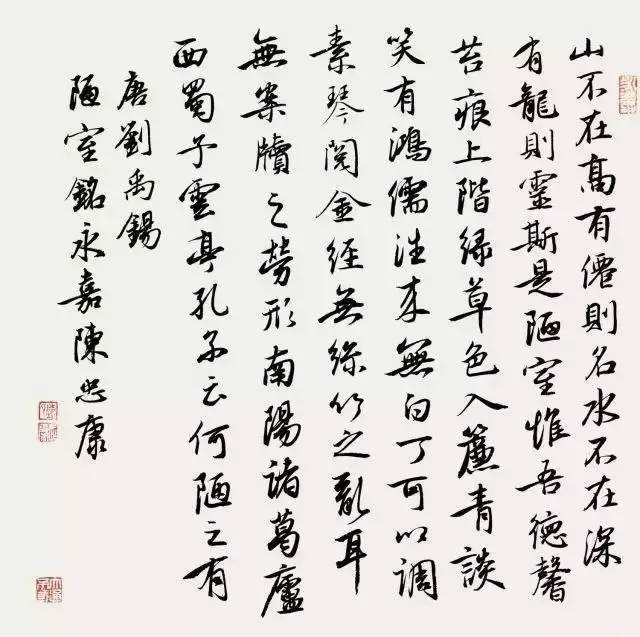 山不在高有僊則名水不在深
有龍則靈斯是陋室惟吾德馨
苔痕上階緑草色入簾青談
笑有鴻儒往来無白丁可以調
素琴閲金經無絲竹之亂耳
無案牘之勞形南陽諸葛廬
西蜀子雲亭孔子云何陋之有
唐劉禹錫
陋室銘永嘉陳忠康